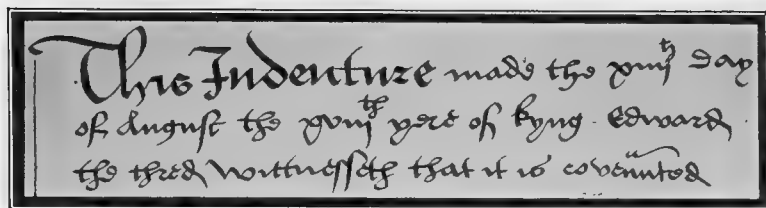 This Indenture made the xiiijth day
of August the xviijth yere of kyng Edward
the thred wittnesseth that it is covennted